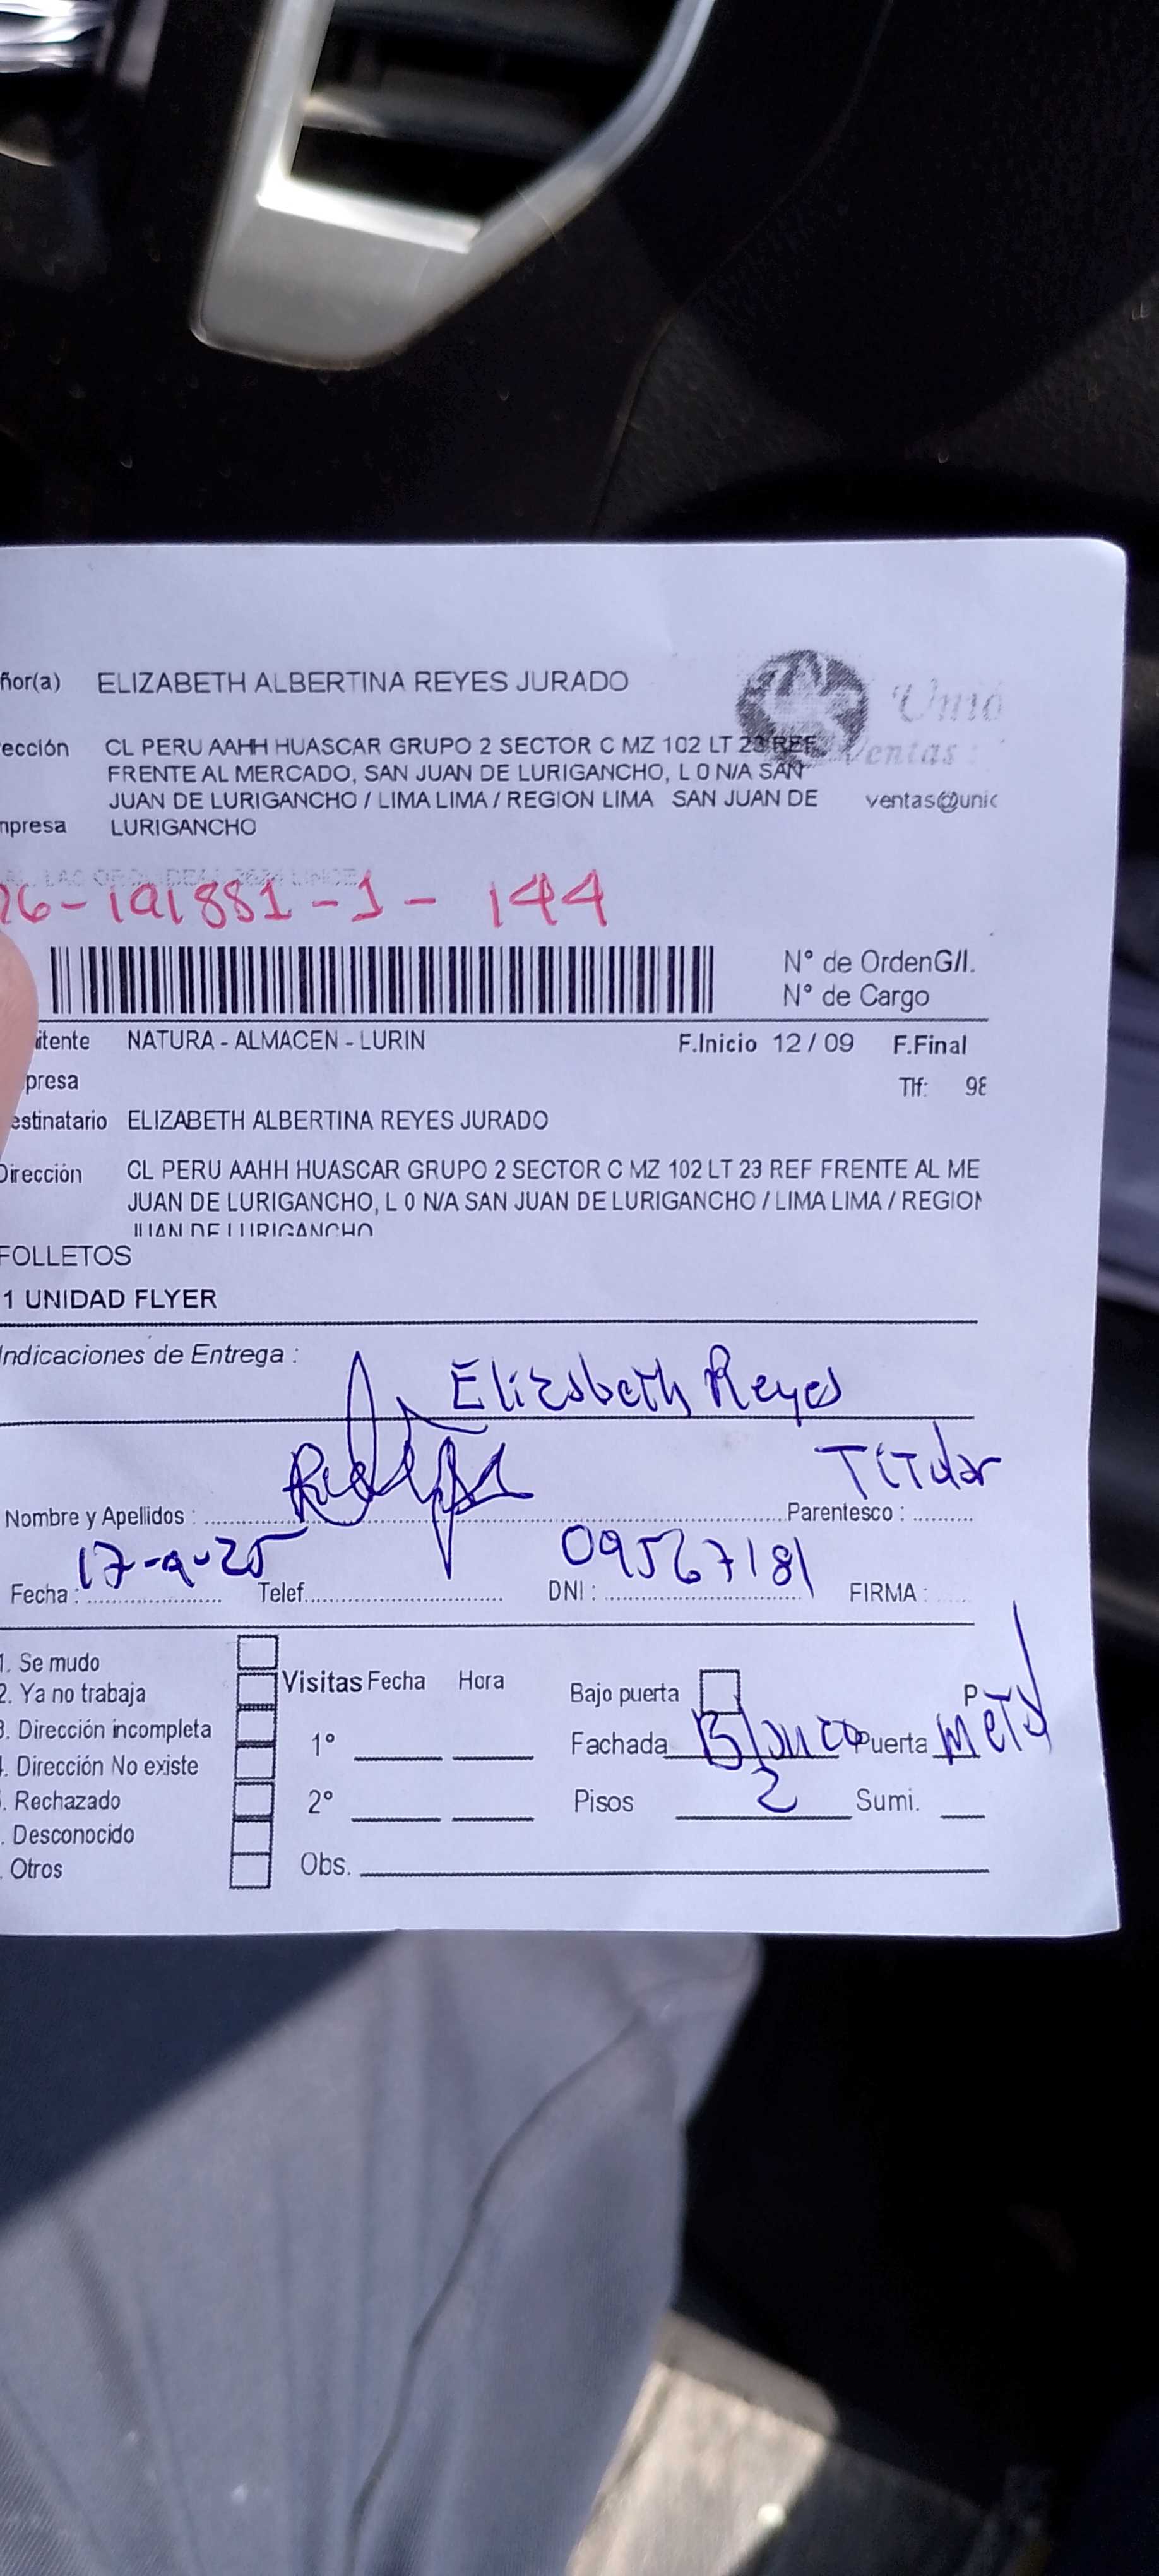 ñor(a) ELIZABETH ALBERTINA REYES JURADO
Unió
ección CL PERU AAHH HUASCAR GRUPO 2 SECTOR C MZ 102 LT 23 REF
entas :
FRENTE AL MERCADO, SAN JUAN DE LURIGANCHO, L 0 N/A SAN
JUAN DE LURIGANCHO / LIMA LIMA / REGION LIMA SAN JUAN DE ventas@unic
npresa LURIGANCHO
26-191881-1- 144
N° de OrdenG/I.
N° de Cargo
itente NATURA - ALMACEN - LURIN F.Inicio 12 / 09 F.Final
presa Tlf: 98
estinatario ELIZABETH ALBERTINA REYES JURADO
Dirección CL PERU AAHH HUASCAR GRUPO 2 SECTOR C MZ 102 LT 23 REF FRENTE AL ME
JUAN DE LURIGANCHO, L 0 N/A SAN JUAN DE LURIGANCHO / LIMA LIMA / REGION
JUAN DE LURIGANCHO
FOLLETOS
1 UNIDAD FLYER
Indicaciones de Entrega :
Elizabeth Reyes
Titular
Nombre y Apellidos : Parentesco :
Fecha : 17-9-25 Telef. DNI : 09567181 FIRMA :
1. Se mudo
2. Ya no trabaja Visitas Fecha Hora Bajo puerta P
3. Dirección incompleta 1° Fachada Blanco Puerta Metal
. Dirección No existe
. Rechazado 2° Pisos 2 Sumi.
. Desconocido
. Otros Obs.